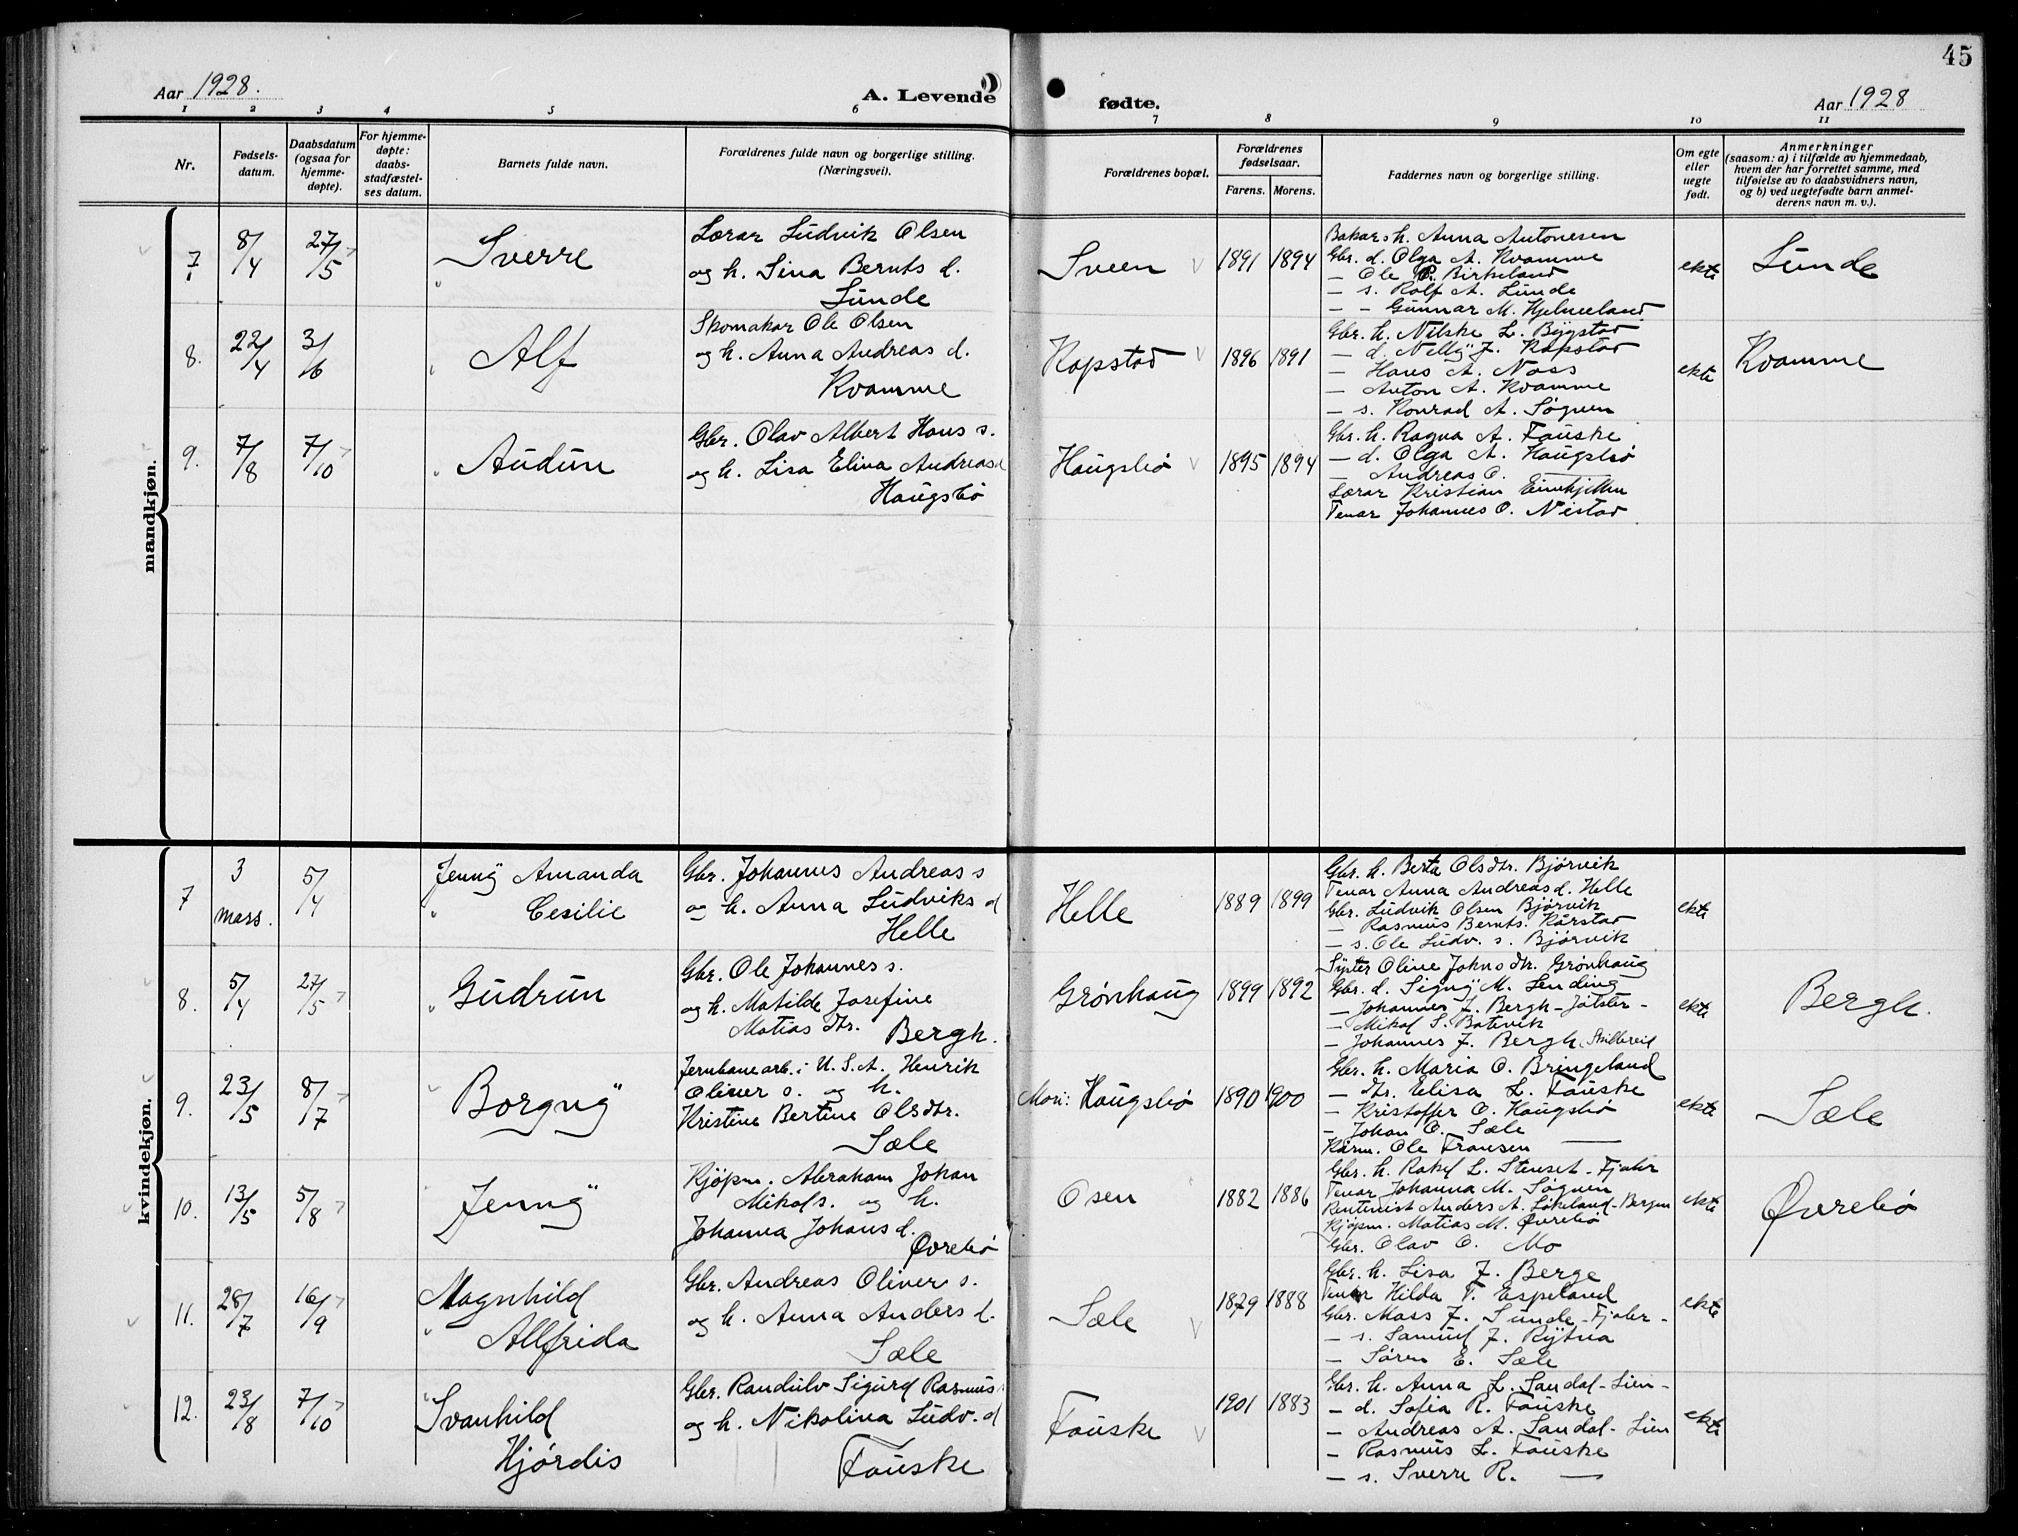 45
Aar 1928.
A. Levende
fødte.
Aar 1928
1 2 3 4 5 6 7 8 9 10 11
Nr.
Fødsels-
datum.
Daabsdatum
(ogsaa for
hjemme-
døpte).
For hjemme-
døpte:
daabs-
stadfæstel-
ses datum.
Barnets fulde navn.
Forældrenes fulde navn og borgerlige stilling.
(Næringsvei).
Forældrenes bopæl.
Forældrenes
fødselsaar.
Farens. Morens.
Faddernes navn og borgerlige stilling.
Om egte
eller
uegte
født.
Anmerkninger
(saasom: a) i tilfælde av hjemmedaab,
hvem der har forrettet samme, med
tilføielse av to daabsvidners navn,
og b) ved uegtefødte barn anmel-
derens navn m. v.).
mandkjøn.
7.
8/4
27/5
Sverre
Lærar Ludvik Olsen
og h. Sina Bernts d.
Lunde
Sveen
1891 1894
Bakar h. Anna Antonesen
Gbr. d. Olga A. Kvamme
— Ole P. Birkeland
— s. Rolf A. Lunde
— - Gunnar M. Hjelmeland
ekte
Lunde
8.
22/4
3/6
Alf
Skomakar Ole Olsen
og h. Anna Andreas d.
Kvamme
Kopstad
1896 1891
Gbr. h. Nilske L. Bygstad
— d. Nelly J. Kopstad
— Hans A. Nøss
— Anton A. Kvamme
— s. Konrad A. Søgnen
ekte
Kvamme
9.
7/8
7/10
Audun
Gbr. Olav Albert Hans s.
og h. Lisa Elina Andreas d
Haugsbø
Haugsbø
1895 1894
Gbr. h. Ragna A. Fauske
— d. Olga A. Haugsbø
— Andreas O. —
Lærar Kristian
Tenar Johannes O. Nistad
ekte
kvindekjøn.
7
3
mars.
5/4
Jenny Amanda
Cesilie
Gbr. Johannes Andreas s
og h. Anna Ludviks d
Helle
Helle
1889 1899
Gbr. h. Berta Olsdtr. Bjørvik
Tenar Anna Andreas d. Helle
Gbr. Ludvik Olsen Bjørvik
— Rasmus Bernts. Kårstad
— s. Ole Ludv. s. Bjørvik
ekte
8.
5/4
27/5
Gudrun
Gbr. Ole Johannes s.
og h. Matilde Josefine
Matias dtr. Bergh.
Grønhaug
1899 1892
Syster Oline Johnsdtr. Grønhaug
Gbr. d. Signy M. Sending
— Johannes J. Bergh - Jølster -
— Mikal S. Botevik
— Johannes J. Bergh
ekte
Bergh.
9.
23/5
8/7
Borgny
Jernbanearb. i U. S. A. Henrik
Oliver s. og h.
Kristine Bertine Olsdtr.
Sæle
Mori: Haugsbø
1890 1900
Gbr. h. Maria O. Bringeland
— dtr. Elisa L. Fauske
— Kristoffer O. Haugsbø
— Johan O. Sæle
Ole Fransen —
ekte
Sæle
10.
13/5
5/8
Jenny
Kjøpm. Abraham Johan
Mikals. og h.
Johanna Johans d.
Øvrebø
Osen
1882 1886
Gbr. h. Rakel L. Stenset - Fjaler
Tenar Johanna M. Søgnen
Rentenist Anders A. Løkeland - Bergen
Kjøpm. Matias M. Øvrebø
Gbr. Olav O. Mo
ekte
Øvrebø
11.
28/7
16/9
Magnhild
Allfrida
Gbr. Andreas Oliver s.
og h. Anna Anders d.
Sæle
Sæle
1879 1888
Gbr. h. Lisa J. Berge
Tenar Hilda T. Espeland
Gbr. Mass J. Sunde - Fjaler -
— s. Samuel J. Rytna
— Søren E. Sæle
ekte
12.
23/8
7/10
Svanhild
Hjørdis
Gbr. Randulv Sigurd Rasmus
og h. Nikolina Ludv. d
Fauske
Fauske
1901 1883
Gbr. h. Anna L. Sandal - Lien -
— d. Sofia R. Fauske
— Andreas A. Sandal - Lien
— Rasmus L. Fauske
— s. Sverre R. —
ekte